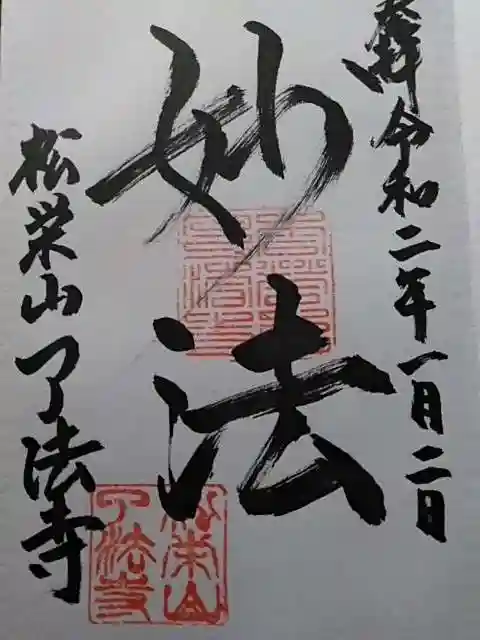 奉拝 令和二年一月二日
妙法
松栄山 了法寺
松栄山
了法寺